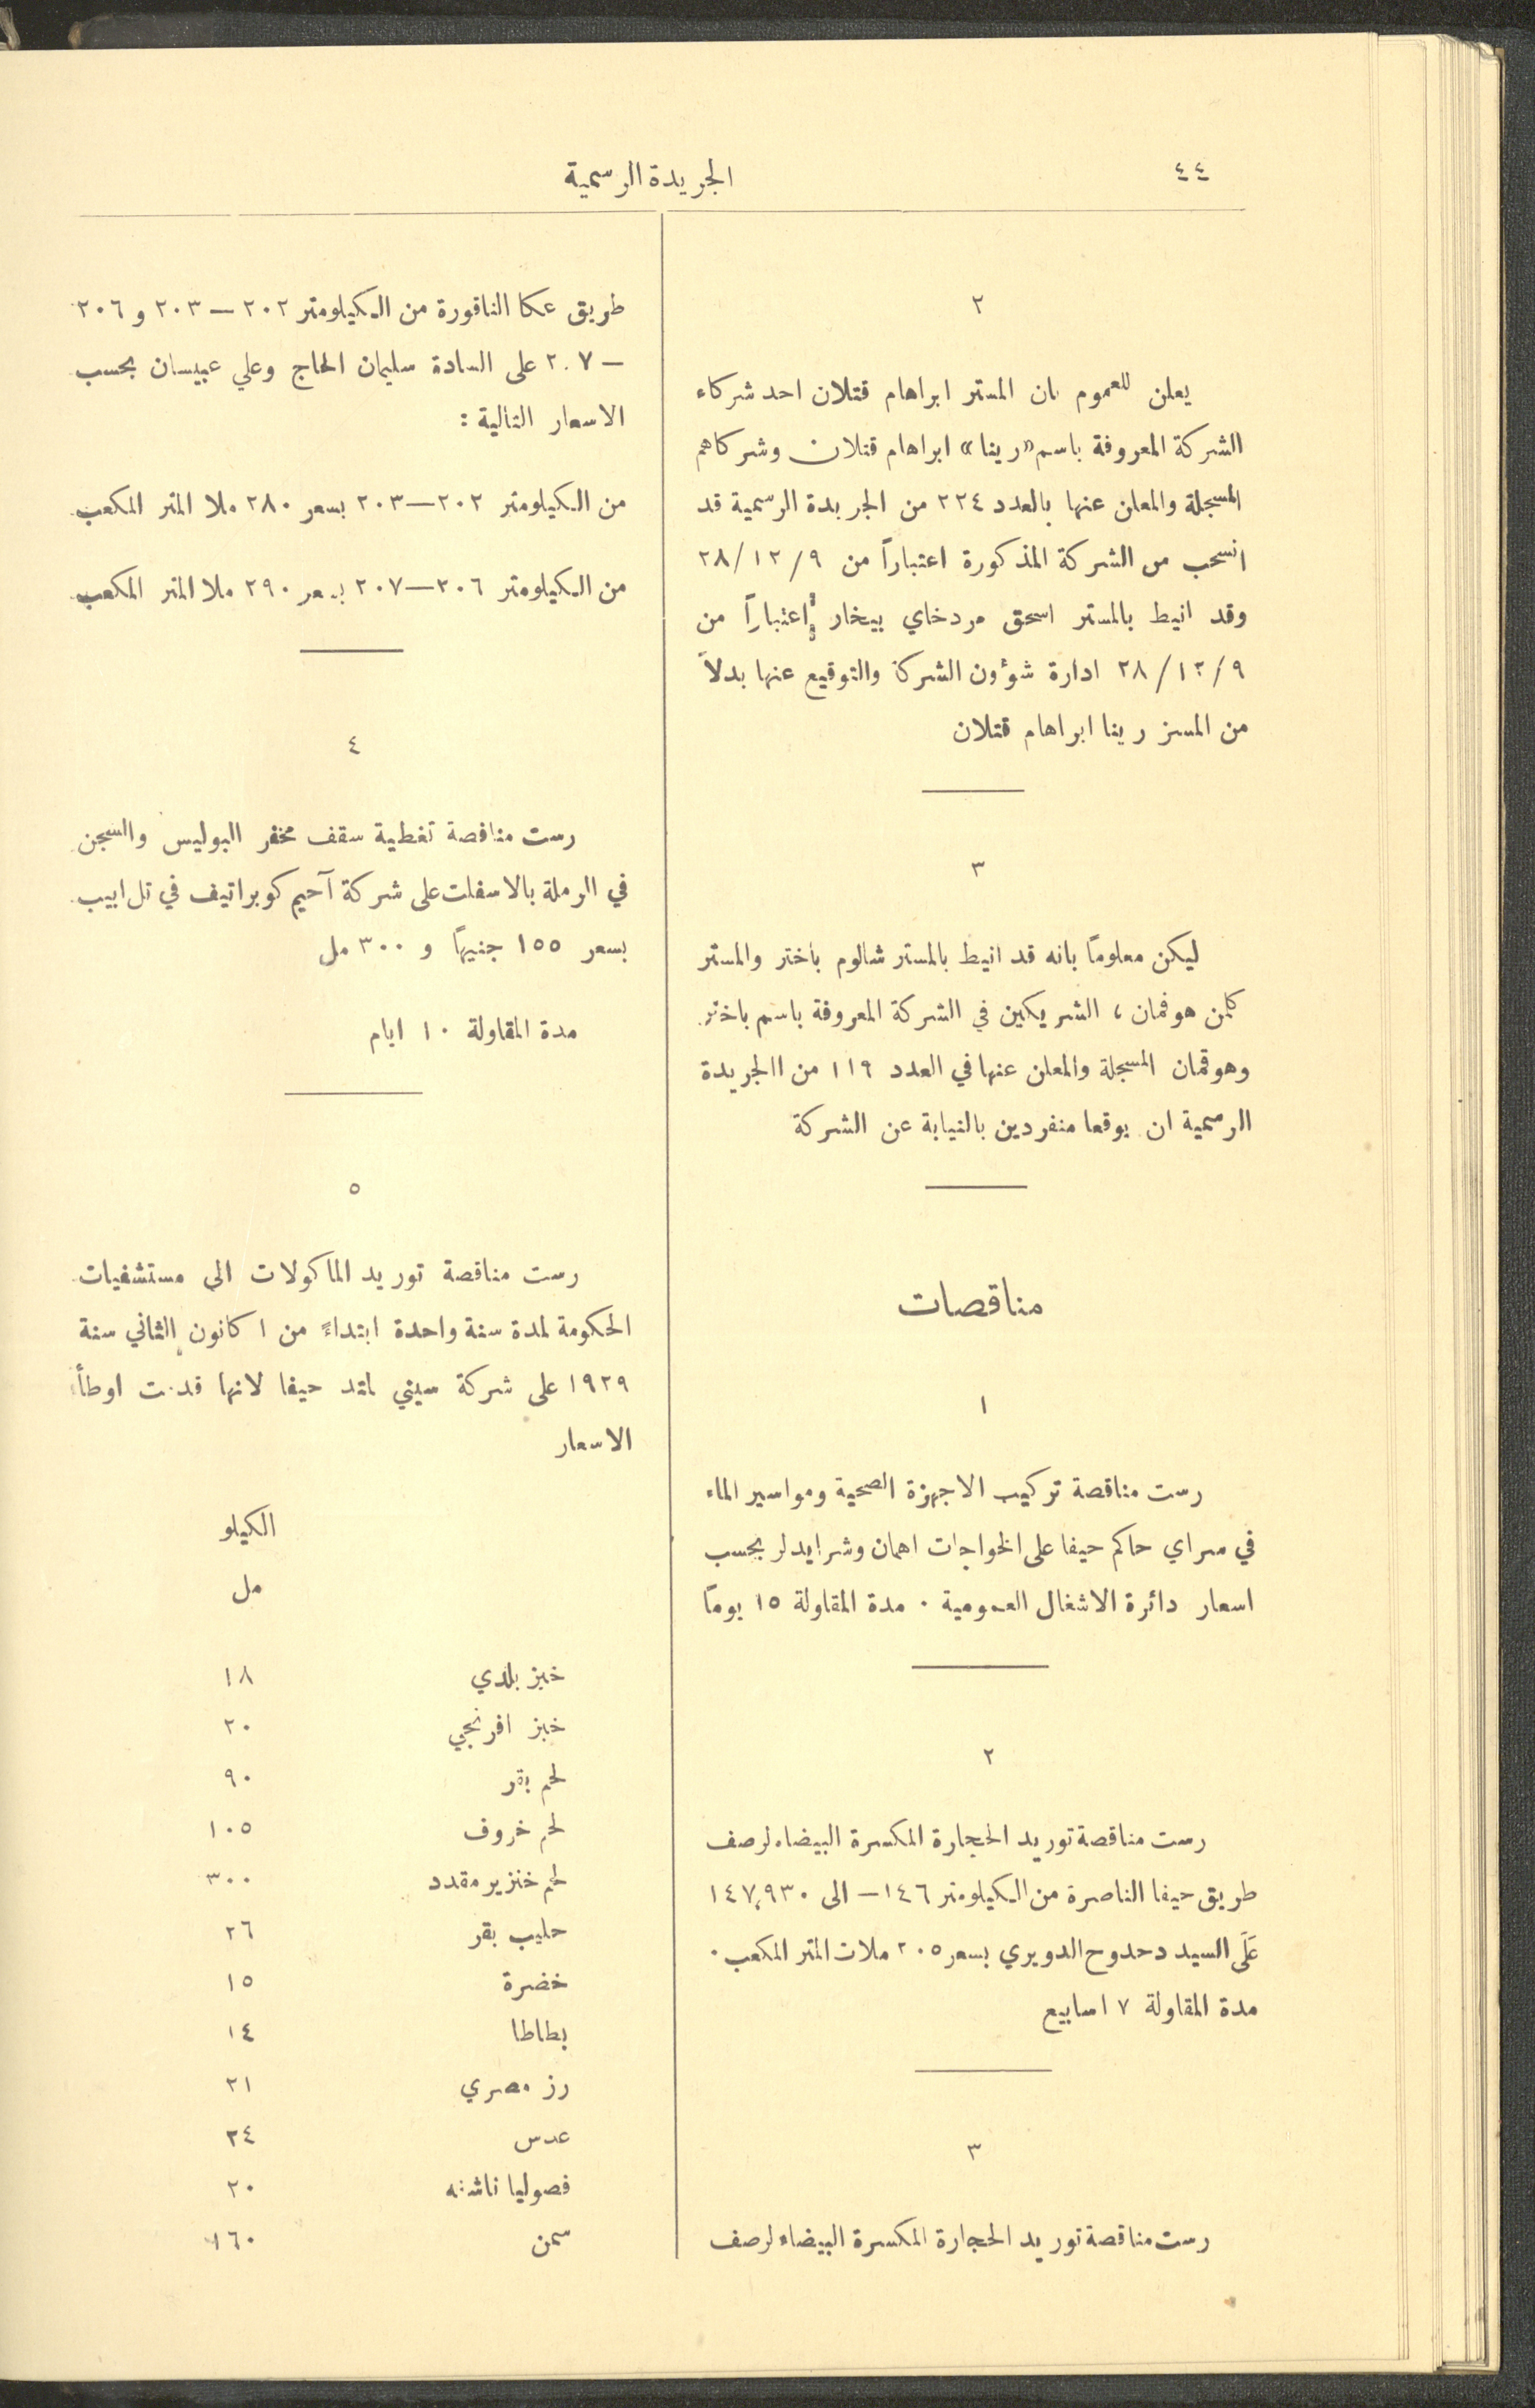 ٤٤
الجريدة الرسمية
٢
يعلن للعموم بان المستر ابراهام قتلان احد شركاء
الشركة المعروفة باسم «رينا» ابراهام قتلان وشركاهم
المسجلة والمعلن عنها بالعدد ٢٢٤ من الجريدة الرسمية قد
انسحب من الشركة المذكورة اعتباراً من ٩/١٢/٢٨
وقد انيط بالمستر اسحق مردخاي بيخار اعتباراً من
٩/١٢/٢٨ ادارة شؤون الشركة والتوقيع عنها بدلاً
من المسز رينا ابراهام قتلان
٣
ليكن معلوماً بانه قد انيط بالمستر شالوم باختر والمستر
كلمن هوفمان، الشريكين في الشركة المعروفة باسم باختر
وهوفمان المسجلة والمعلن عنها في العدد ١١٩ من االجريدة
الرسمية ان يوقعا منفردين بالنيابة عن الشركة
مناقصات
١
رست مناقصة تركيب الاجهزة الصحية ومواسير الماء
في سراي حاكم حيفا على الخواجات اهمان وشرايدلر بحسب
اسعار دائرة الاشغال العمومية . مدة المقاولة ١٥ يوماً
٢
رست مناقصة توريد الحجارة المكسرة البيضاء لرصف
طريق حيفا الناصرة من الكيلومتر ١٤٦ — الى ١٤٧,٩٣٠
على السيد دحدوح الدويري بسعر ٢٠٥ ملات المتر المكعب .
مدة المقاولة ٧ اسابيع
٣
رست مناقصة توريد الحجارة المكسرة البيضاء لرصف
طريق عكا الناقورة من الكيلومتر ٢٠٢ — ٢٠٣ و ٢٠٦
— ٢٠٧ على السادة سليمان الحاج وعلي عبيسان بحسب
الاسعار التالية :
من الكيلومتر ٢٠٢—٢٠٣ بسعر ٢٨٠ ملا المتر المكعب
من الكيلومتر ٢٠٦—٢٠٧ بسعر ٢٩٠ ملا المتر المكعب
٤
رست مناقصة تغطية سقف مخفر البوليس والسجن
في الرملة بالاسفلت على شركة آحيم كوبراتيف في تل ابيب
بسعر ١٥٥ جنيهاً و ٣٠٠ مل
مدة المقاولة ١٠ ايام
٥
رست مناقصة توريد الماكولات الى مستشفيات
الحكومة لمدة سنة واحدة ابتداءً من ١ كانون الثاني سنة
١٩٢٩ على شركة سيني لمتد حيفا لانها قدمت اوطأ
الاسعار
الكيلو
مل
خبز بلدي ١٨
خبز افرنجي ٢٠
لحم بقر ٩٠
لحم خروف ١٠٥
لحم خنزير مقدد ٣٠٠
حليب بقر ٢٦
خضرة ١٥
بطاطا ١٤
رز مصري ٢١
عدس ٢٤
فصوليا ناشفه ٢٠
سمن ١٦٠